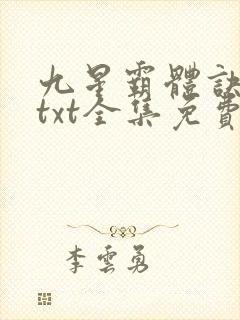 九星霸體訣
txt全集免費
李雲勇